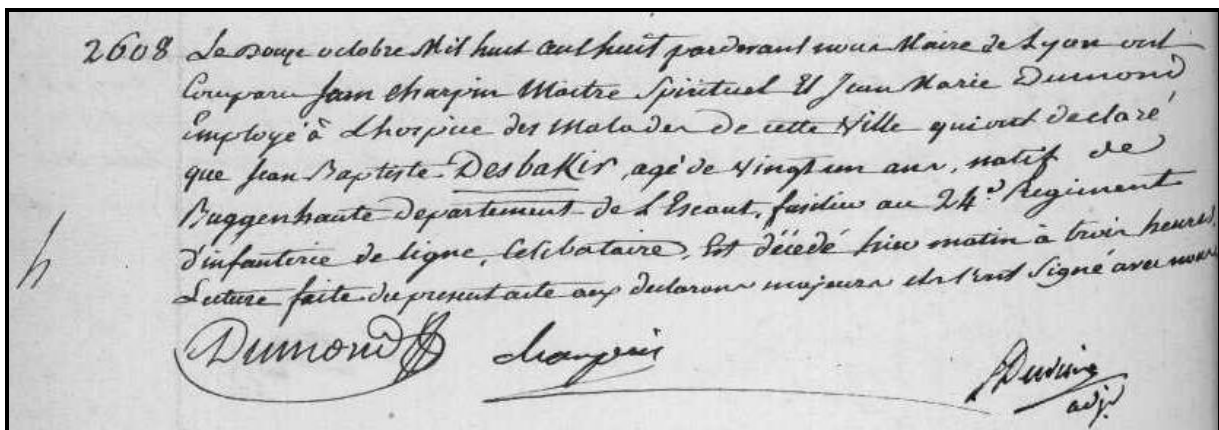 2608 Le douze octobre Mil huit cent huit pardevant nous Maire de Lyon ont
Comparu Jean Charpin Maitre Spirituel Et Jean Marie Dumond
Employé à Lhospice des Malades de cette Ville qui ont declaré
que Jean Baptiste Desbakir, agé de vingt un ans, natif de
Buggenhaute departement de L'Escaut, fusilier au 24.e Regiment
d'infanterie de ligne, Celibataire, Est décédé hier matin à trois heures,
h
Lecture faite du present acte aux declarans majeurs ils l'ont Signé avec nous
Dumond Charpin
adjt